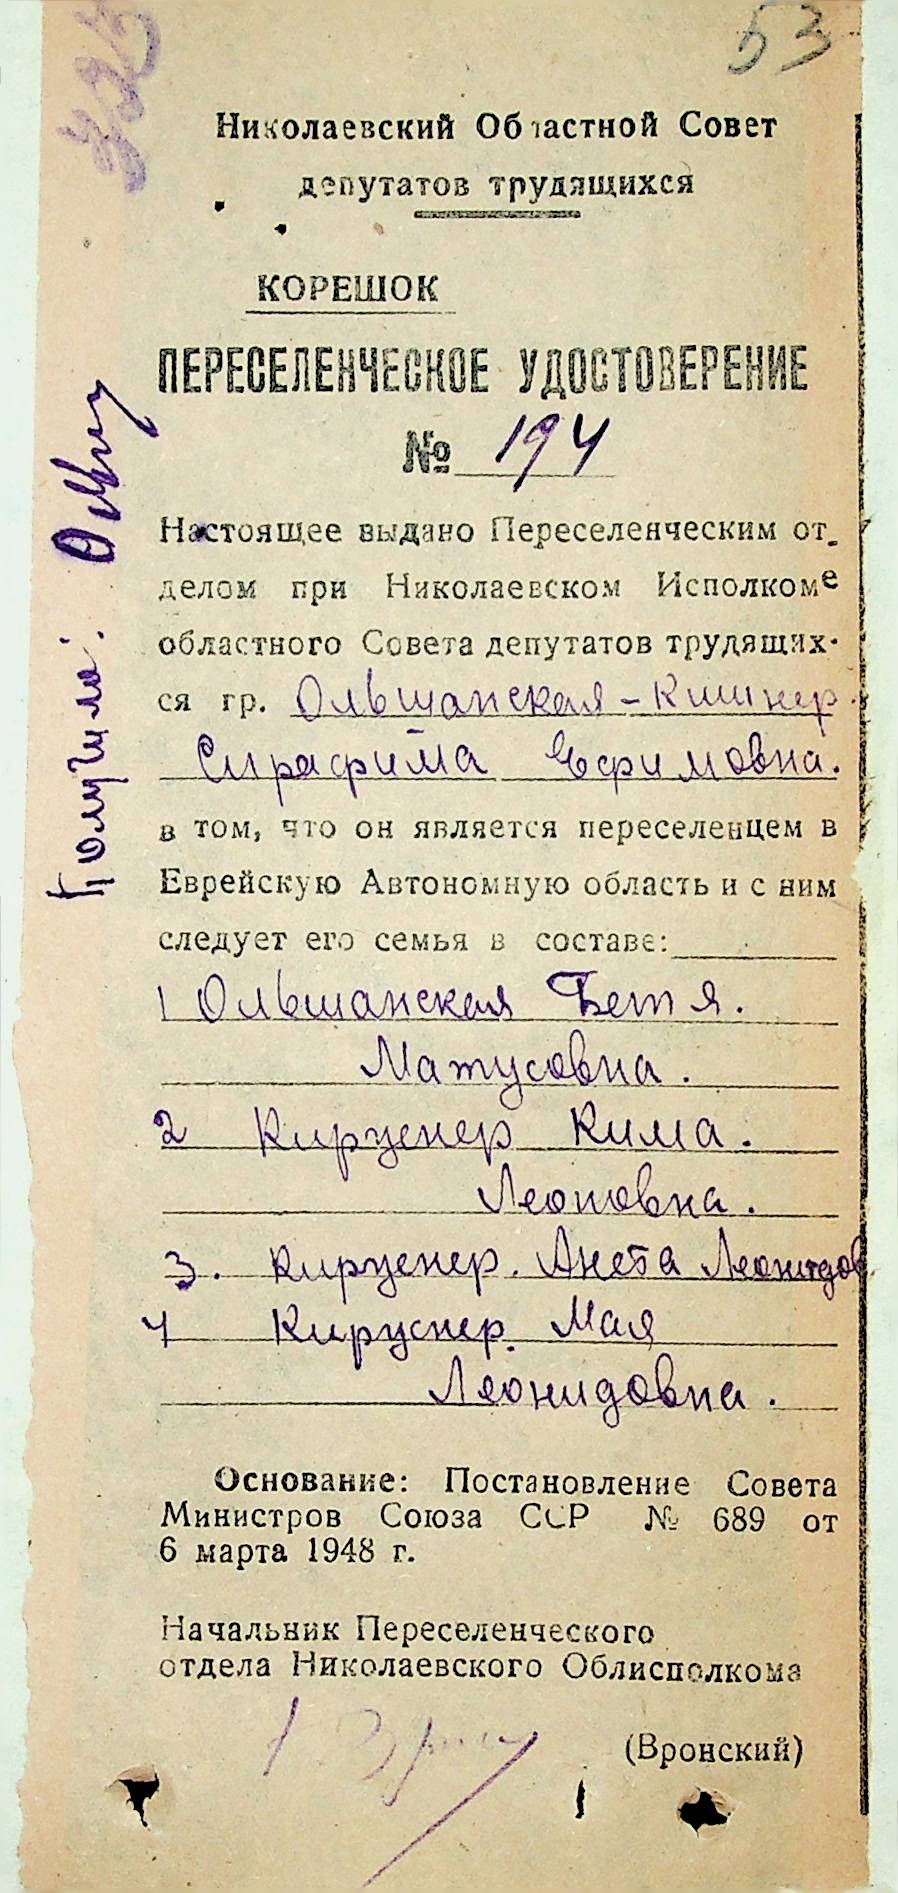 53
Николаевский Областной Совет
депутатов трудящихся
КОРЕШОК
ПЕРЕСЕЛЕНЧЕСКОЕ УДОСТОВЕРЕНИЕ
№ 194
Настоящее выдано Переселенческим от-
делом при Николаевском Исполкоме
областного Совета депутатов трудящих-
ся гр. Ольшанская-Кишнер
Сирафима Ефимовна.
в том, что он является переселенцем в
Еврейскую Автономную область и с ним
следует его семья в составе:
1 Ольшанская Бетя.
Матусовна.
2 Кирценер Кима.
Леоновна.
3. Кирценер. Анета Леонидов
4 Кирценер. Мая
Леонидовна.
Основание: Постановление Совета
Министров Союза ССР № 689 от
6 марта 1948 г.
Начальник Переселенческого
отдела Николаевского Облисполкома
(Вронский)
Получила: